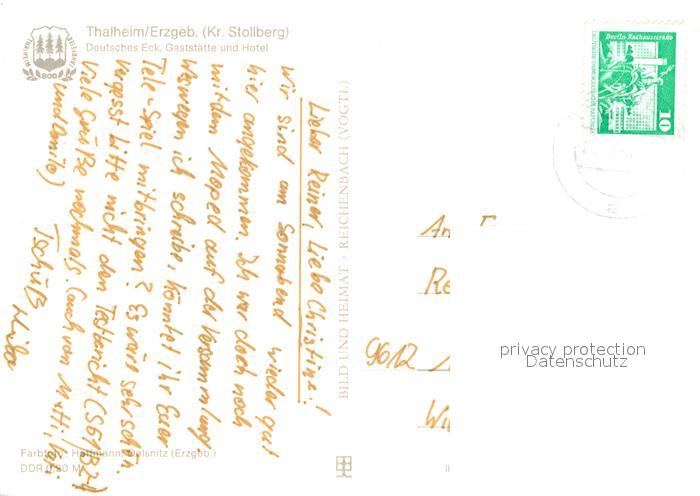 Thalheim/Erzgeb. (Kr. Stollberg)
Deutsches Eck, Gaststätte und Hotel
800
Lieber Reiner, Liebe Christine!
Wir sind am Sonnabend wieder gut
hier angekommen. Ich war doch noch
mit dem Moped auf der Versammlung
Weswegen ich schreibe, könntet ihr Euer
Tele-Spiel mitbringen? Es wäre sehr schön.
Vergesst bitte nicht den Testbericht
Viele Grüße nochmals. (auch von Mutti, Vati
Tschüß
BILD UND HEIMAT · REICHENBACH (VOGTL)
Berlin-Rathausstraße
10
9612
privacy protection
Datenschutz
Farbfoto: Hoffmann, Oelsnitz (Erzgeb.)
DDR 0,20 M